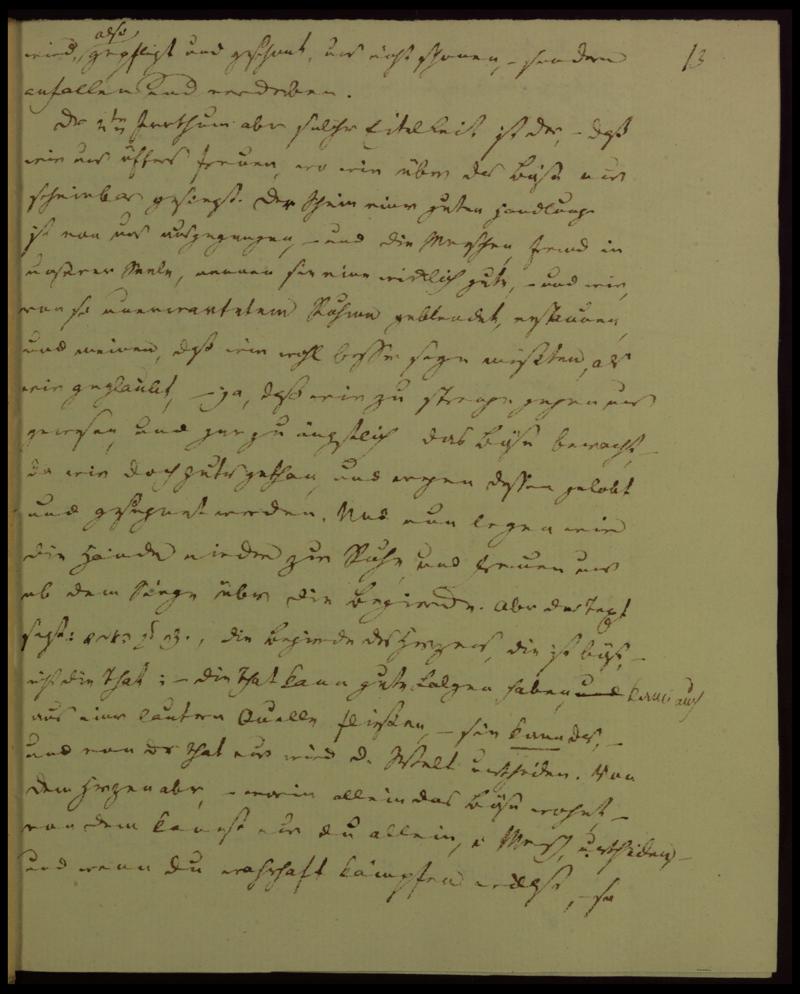 also
wird, gepflegt und geschont, uns nicht schonen, – sondern 13
anfallen und verderben.
Der 2te Irrthum aber solcher Eitelkeit ist der, – daß
wir uns öfters freuen, wo wir über das Böse nur
scheinbar gesiegt. Der Schein einer guten Handlung
ist von uns ausgegangen, – und die Menschen, fremd in
unserer Seele, nennen sie eine wirklich gute, – und wir,
von so unerwartetem Ruhme geblendet, erstaunen,
und meinen, daß wir wohl besser seyn müßten, als
wir geglaubt, – ja, daß wir zu strenge gegen uns
gewesen, und gar zu ängstlich das Böse bewacht, –
da wir doch gutes gethan, und wegen dessen gelobt
und gesegnet werden. Und nun legen wir
die Hände nieder zur Ruhe, und freuen uns
ob dem Siege über die Begierde. Aber der Text
sagt: die Begierde des Herzens, die ist böse, –
nicht die That: – die That kann gute Folgen haben, und kann auch
aus einer lautern Quelle fließen, – sie kann das, –
und von der That nur wird d. Welt urtheilen. Von
dem Herzen aber, – worin allein das Böse wohnt, –
von dem kannst nur du allein, o Mensch, urtheilen, –
und wenn du wahrhaft kämpfen willst, – so